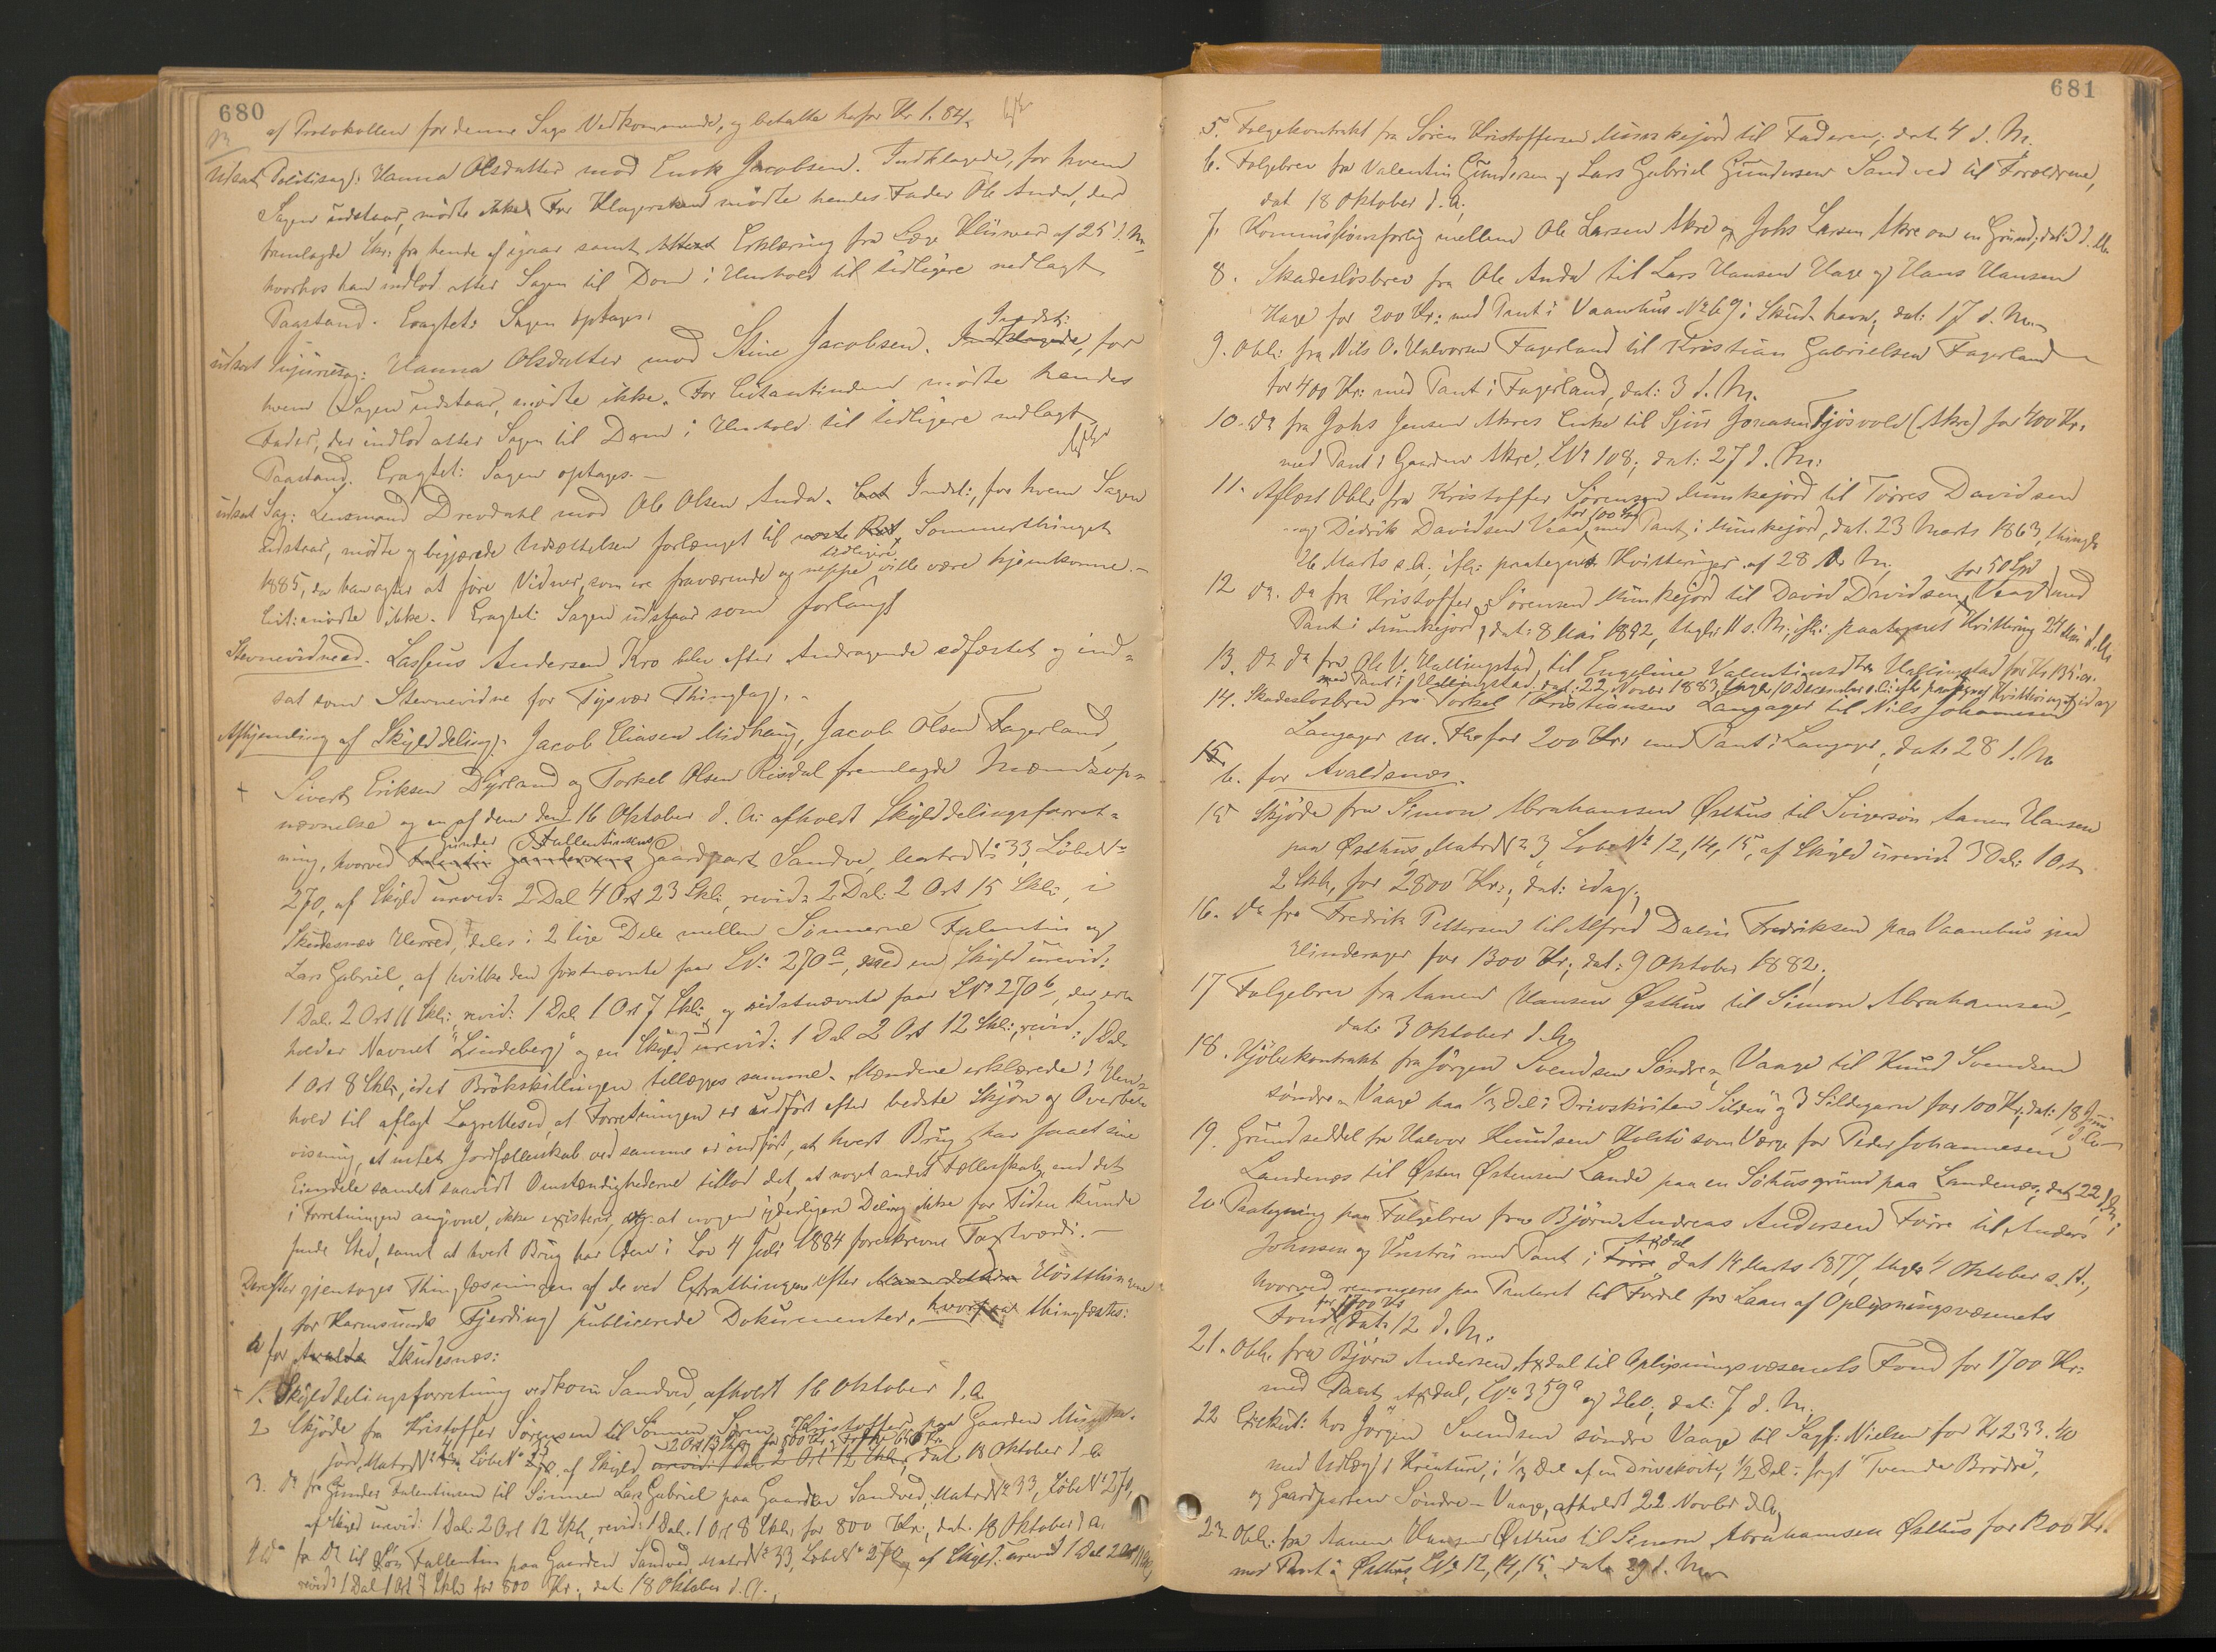 680
af Protokollen for denne Sags Vedkommende, og betalte herfor Kr 1.84.
udsat Politisag: Hanna Olsdatter mod Enok Jacobsen. Indklagede, for hvem
Sagen udstaar, mødte ikke. For Klagersken mødte hendes Fader Ole Anda, der
fremlagde Skr: fra hende af igaar samt Attest Erklæring fra Læge af 25 d. M.
hvorhos han indlod atter Sagen til Dom i Henhold til tidligere nedlagt
Paastand. Eragtet: Sagen optages.
Indst:
udsat Injuriesag: Hanna Olsdatter mod Stine Jacobsen. Indklagede, for
hvem Sagen udstaar, mødte ikke. For Citantinden mødte hendes
Fader, der indlod atter Sagen til Dom i Henhold til tidligere nedlagt
Paastand. Eragtet: Sagen optages. —
udsat Sag: Lensmand Drevdahl mod Ole Olsen Anda. Indst:, for hvem Sagen
udstaar, mødte og begjærede Udsættelsen forlænget til næste Ret Sommerthinget
tidligere
1885, da han agter at føre Vidner, som ere fraværende og neppe ville være hjemkomne. —
Cit: mødte ikke. Eragtet: Sagen udstaar som forlangt
Stevnevidneed. Lassæus Andersen Kro blev efter Andragende edfæstet og ind-
sat som Stevnevidne for Tysvær Thinglag. -
Afhjemling af Skylddeling: Jacob Eliasen Midhaug, Jacob Olsen Fagerland,
+ Sivert Eriksen Dyrland og Torkel Olsen Risdal fremlagde Mændsop-
nævnelse og en af dem den 16 Oktober d. A: afholdt Skylddelingsforret-
Gunder Fallentinsens
ning, hvorved Gaardpart Sandve, Matr N: 33, Løbe N:
270, af Skyld urevid: 2 Dal 4 Ort 23 Skl:, revid: 2 Dal: 2 Ort 15 Skl:, i
Skudesnæs Herred, deles i 2 lige Dele mellem Sønnerne Falentin og
Lars Gabriel, af hvilke den førstnævnte faar LN: 270a, med en Skyld urevid:
1 Dal. 2 Ort 11 Skl:, revid: 1 Dal 1 Ort 7 Skl:, og sidstnævnte faar LN: 270b, der er-
holder Navnet "Lindeberg" og en Skyld urevid: 1 Dal 2 Ort 12 Skl:, revid: 1 Dal.
1 Ort 8 Skl:, idet Brökskillingen tillægges samme. Mændene erklærede i Hen-
hold til aflagt Lagrettesed, at Forretningen er udført efter bedste Skjøn og Overbe-
visning, at intet Jordfællesskab ved samme er indført, at hvert Brug har faaet sine
Eiendele samlet saavidt Omstændighederne tillod det, at noget andet Fællesskab, end det
i Forretningen angivne, ikke existerer, at nogen yderligere Deling ikke for Tiden kunde
finde Sted, samt at hvert Brug har den i Lov 4 Juli 1884 foreskrevne Taxtværdi. —
Derefter gjentages Thinglæsningen af de ved Extrathingene efter Høstthingene
for Karmsunds Fjerding publicerede Dokumenter, hvorpaa thinglæstes:
a for Avalds Skudesnæs:
+ 1. Skylddelingsforretning vedkom: Sandved, afholdt 16 Oktober d. A.
2 Skjøde fra Kristoffer Sørensen til Sønnen Søren Kristoffersen paa Gaarden Munke-
2 Ort 13 Skl: for 800 Kr
jord, Matr N: Løbe N: af Skyld urevid: 1 Dal 2 Ort 12 Skl:, dat 18 Oktober d. A.
3. Do fra Gunder Falentinsen til Sønnen Lars Gabriel paa Gaarden Sandved, Matr N: 33, Løbe N: 270,
af Skyld urevid: 1 Dal: 2 Ort 12 Skl:, revid: 1 Dal. 1 Ort 8 Skl: for 800 Kr:, dat: 18 Oktober d. A.
4 Do fra Do til Søn Fallentin paa Gaarden Sandved, Matr N: 33, Løbe N: 270 af Skyld: urevid 1 Dal 2 Ort 11 Skl,
revid: 1 Dal 1 Ort 7 Skl: for 800 Kr:, dat: 18 Oktober d. A.,
681
5. Følgekontrakt fra Søren Kristoffersen Munkejord til Faderen; dat. 4 d. M.
6. Følgebrev fra Valentin Gundersen og Lars Gabriel Gundersen Sandved til Forældrene,
dat 18 Oktober d. A.
7. Kommissionsforlig mellem Ole Larsen Akre og Johs Larsen Akre om en Grund; dat: d. M.
8. Skadesløsbrev fra Ole Anda til Lars Hansen Hage og Hans Hansen
Hage for 200 Kr: med Pant i Vaanehus No 67 i Skud. havn; dat: 17 d. M.
9. Obl: fra Nils O. Halvorsen Fagerland til Kristian Gabrielsen Fagerland
for 400 Kr: med Pant i Fagerland, dat: 3 d. M.
10. Do fra Johs Jensen Akres Enke til Sjur Jonasen Tjøsvold (Akre) for 400 Kr.
med Pant i Gaarden Akre, LN: 108; dat: 27 d. M:
11. Aflæst Obl: fra Kristoffer Sørensen Munkejord til Torres Davidsen
for 100 Spd
og Didrik Davidsen Vea med Pant i Munkejord, dat. 23 Marts 1863, thingl:
26 Marts s. A., ifl: paategnet Kvitteringer af 28 d. M.
for 50 Spd
12 Do. Do fra Kristoffer Sørensen Munkejord til David Davidsen Vea med
Pant i Munkejord, dat: 8 Mai 1842, thgl: 11 s. M., ifl: paategnet Kvittering 24 Mai d. A.
13. Do Do fra Ole V. Hallingstad til Engeline Valentinsdtr Hallingstad for Kr
med Pant i Hallingstad, dat: 22 Novbr 1883, thgl. 10 December s. A: ifl: paategnet Kvittering af idag
14. Skadesløsbrev fra Torkel Kristiansen Langager til Nils Johannesen
Langager m. Fl: for 200 Kr: med Pant i Langager, dat: 28 d. M.
15.
b. for Avaldsnæs.
15 Skjøde fra Simon Abrahamsen Østhus til Svigersøn Aanen Hansen
paa Østhus, Matr N: 3, Løbe N: 12, 14, 15, af Skyld urevid: 3 Dal: 1 Ort
2 Skl., for 2800 Kr:; dat: idag;
16. Do fra Fredrik Pettersen til Alfred Dalin Fredriksen paa Vaanehus paa
Hinderager for 1300 Kr; dat: 9 Oktober 1882;
17 Følgebrev fra Aanen Hansen Østhus til Simon Abrahamsen,
dat: 3 Oktober d. A.
18. Kjøbekontrakt fra Jörgen Svendsen Søndre Vaage til Knud Svendsen
søndre Vaage paa 1/3 Del i Drivskøiten "Silden" og 3 Sildegarn for 100 Kr; dat: 18 Juni
d. A.
19. Grundseddel fra Halvor Knudsen Kolstø som Værge for Peder Johannesen
Landenæs til Østen Østensen Lande paa en Søhusgrund paa Landenæs; dat 22 d. M.
20 Paategning paa Følgebrev fra Bjørn Andreas Andersen Førre til Anders
Axdal
Johnsen og Hustru med Pant i Førre, dat 14 Marts 1877, thgl. 4 Oktober s. A.,
hvorved renonceres paa Panteret til Fordel for Laan af Oplysningsvæsenets
for 1700 Kr
Fond, dat: 12 d. M.
21. Obl. fra Bjørn Andersen Axdal til Oplysningsvæsenets Fond for 1700 Kr:
med Pant i Axdal, LN: 359a og 360, dat: 7 d. M.
22 Exekut: hos Jørgen Svendsen søndre Vaage til Sagf: Nielsen for Kr 233.40
med Udlæg i Kreature, i 1/3 Del af en Drivskøite, 1/2 Del i Jagt "Tvende Brødre",
og Gaardparten Søndre-Vaage, afholdt 22 Novbr d. A.
23. Obl: fra Aanen Hansen Østhus til Simon Abrahamsen Østhus for 1200 Kr.
med Pant i Østhus, LN: 12, 14, 15, dat. 29 d. M.